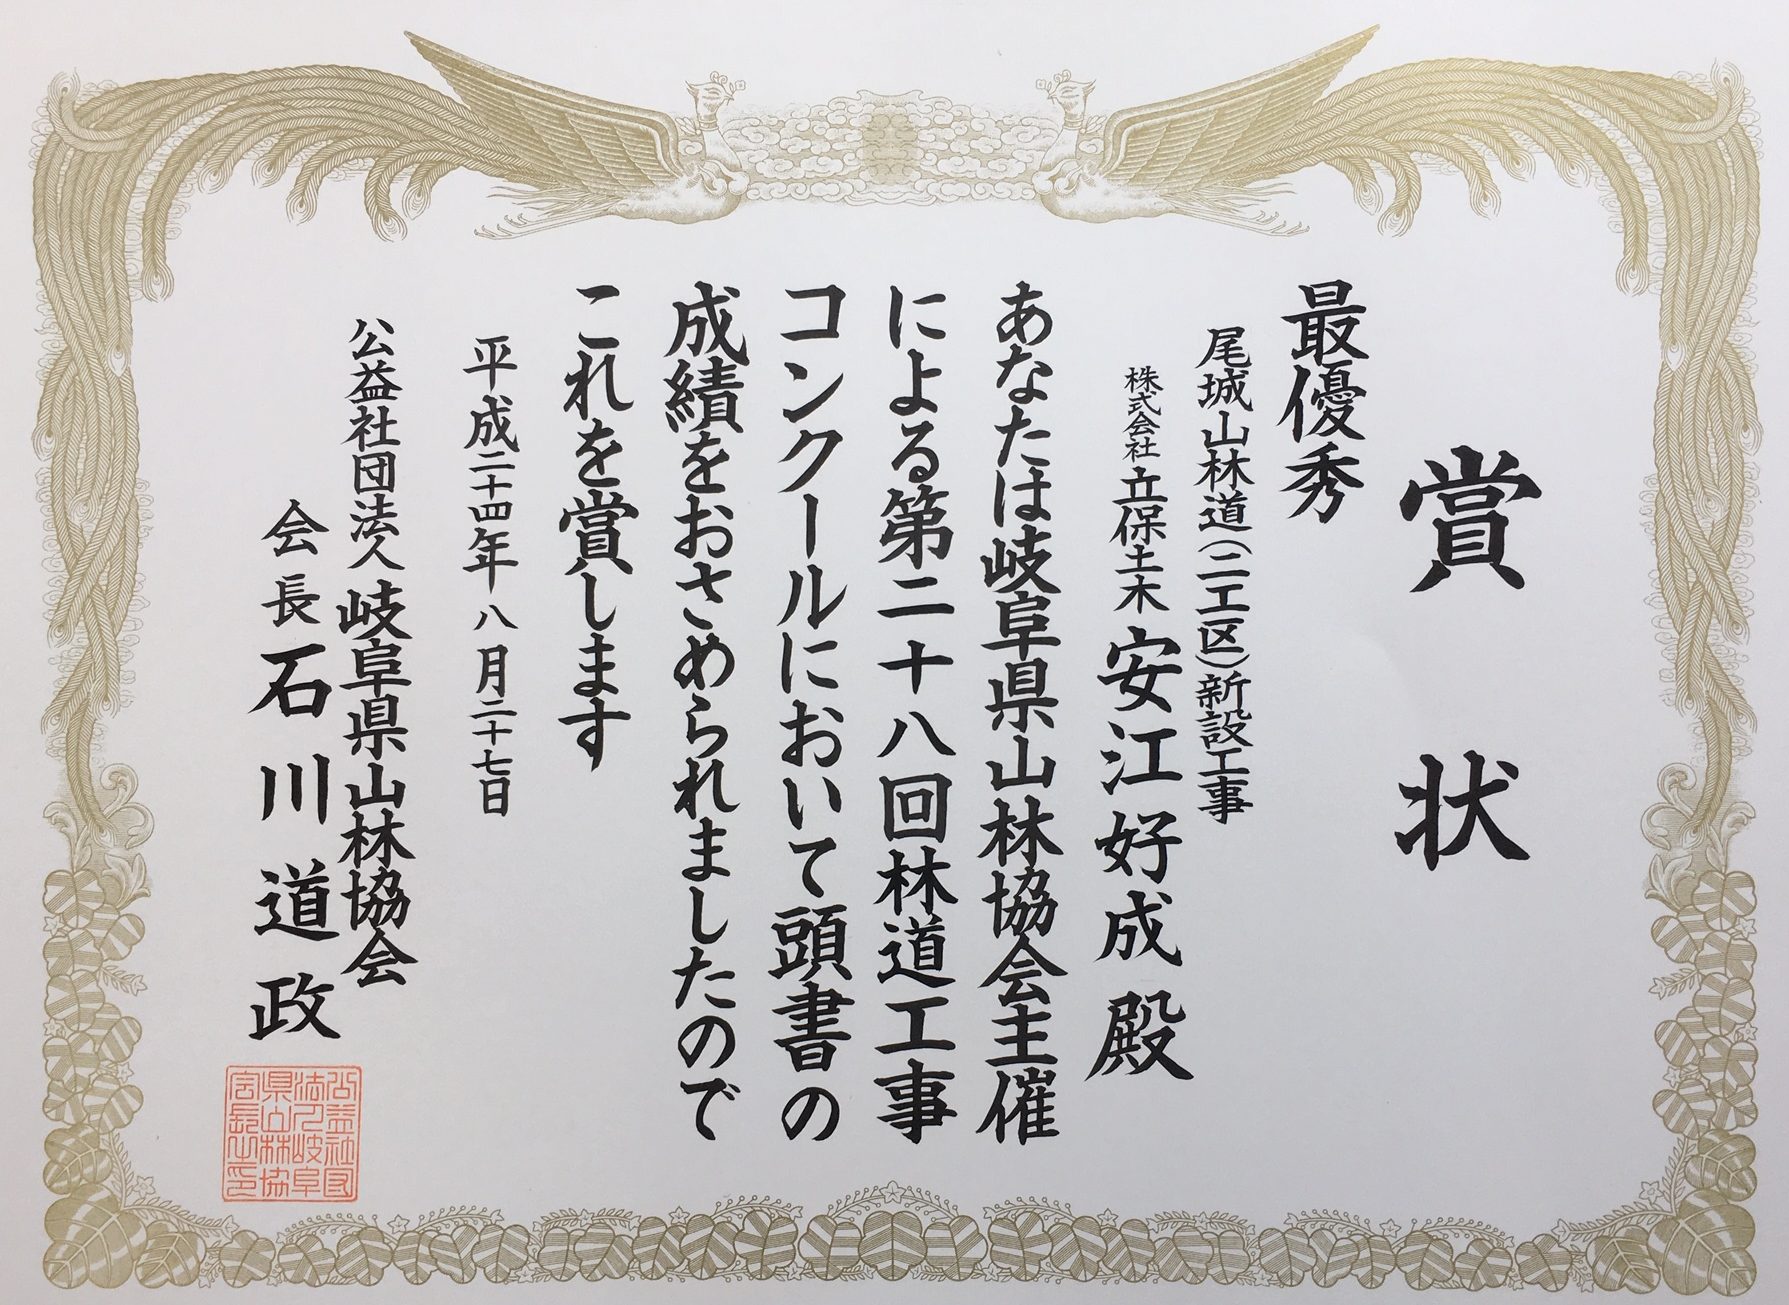 賞状
最優秀
尾城山林道(二工区)新設工事
株式会社立保土木 安江好成殿
あなたは岐阜県山林協会主催
による第二十八回林道工事
コンクールにおいて頭書の
成績をおさめられましたので
これを賞します
平成二十四年八月二十七日
公益社団法人岐阜県山林協会
会長石川道政
公益社団
法人岐阜
県山林協
会長之印